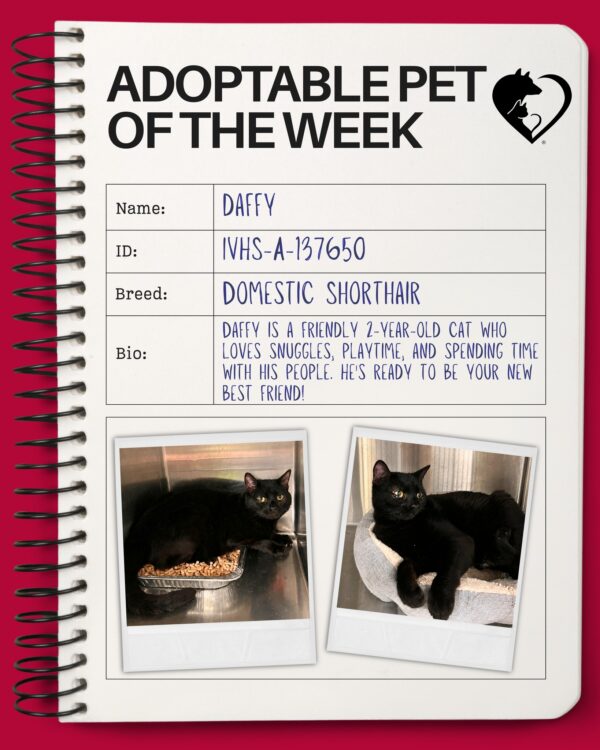 ADOPTABLE PET
OF THE WEEK
Name: DAFFY
ID: IVHS-A-137650
Breed: DOMESTIC SHORTHAIR
Bio: DAFFY IS A FRIENDLY 2-YEAR-OLD CAT WHO
LOVES SNUGGLES, PLAYTIME, AND SPENDING TIME
WITH HIS PEOPLE. HE'S READY TO BE YOUR NEW
BEST FRIEND!
®